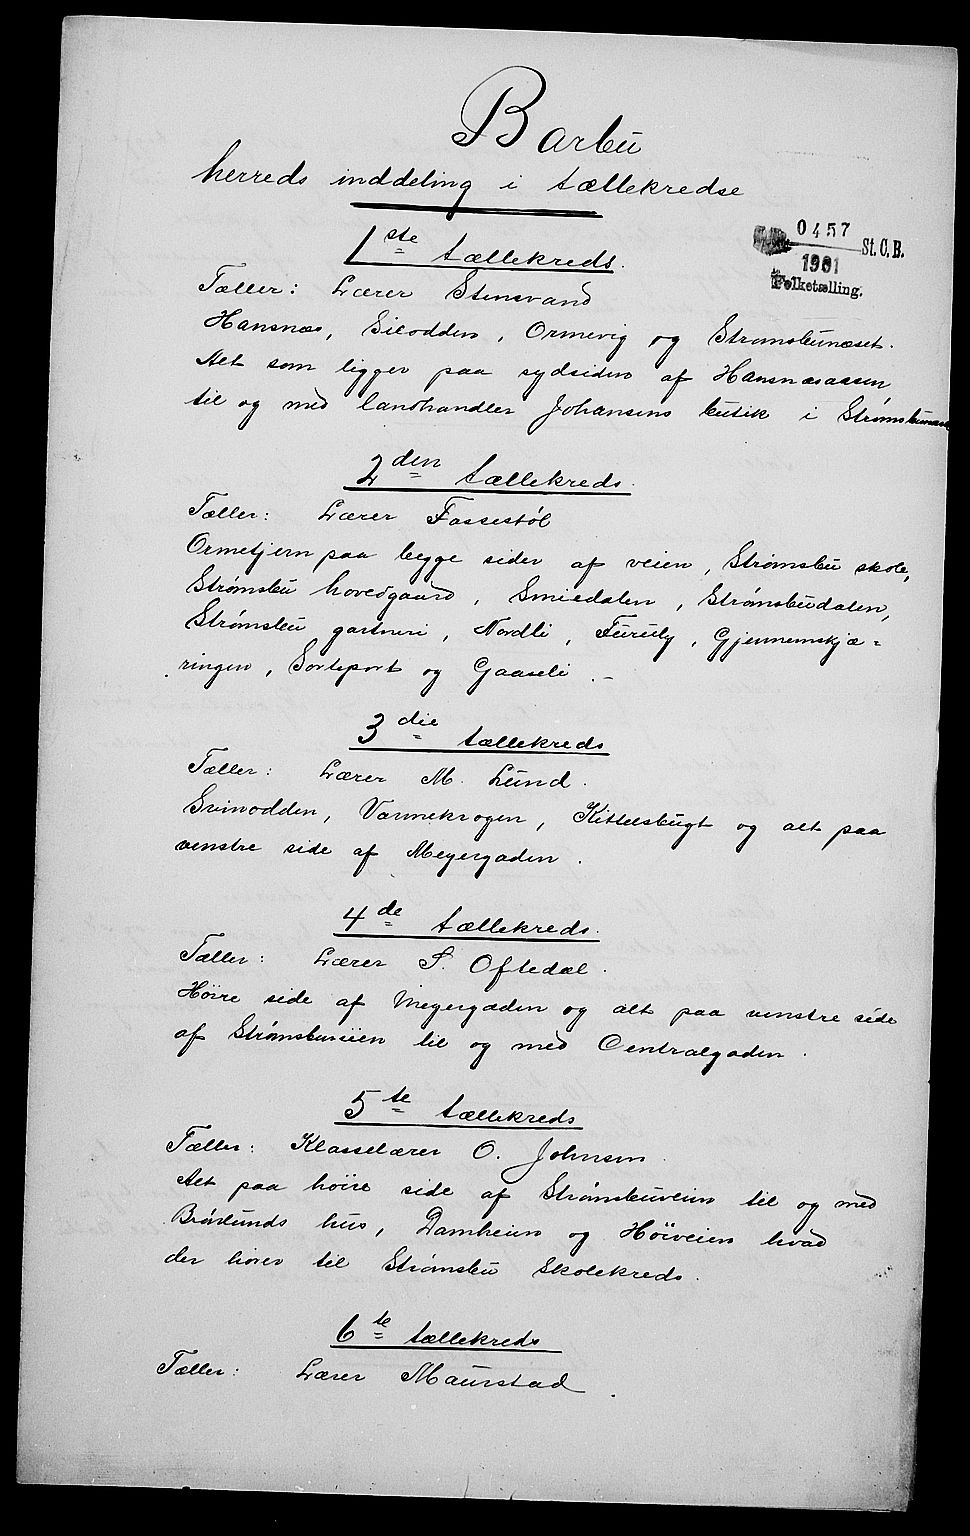 Barbu
herreds inddeling i tællekredse
0457
St. C. B.
1901
Folketælling.
1ste tællekreds.
Tæller: Lærer Stensvand
Hansnæs, Silodden, Ormevig og Strømsbunæset.
Alt som ligger paa sydsiden af Hansnæsaasen
til og med landhandler Johansens butik i Strømsbunæs
2den tællekreds.
Tæller: Lærer Fossestøl
Ormetjern paa begge sider af veien, Strømsbu skole,
Strømsbu hovedgaard, Smiedalen, Strømsbudalen,
Strømsbu gartneri, Nordli, Furuly, Gjennemskjæ=
ringen, Sorteport og Gaaseli.-
3die tællekreds
Tæller: Lærer M. Lund.
Svinodden, Varmekrogen, Kittelsbugt og alt paa
venstre side af Meyergaden.
4de tællekreds.
Tæller: Lærer S. Oftedal.
Høire side af Meyergaden og alt paa venstre side
af Strømsbuveien til og med Centralgaden.
5te tællekreds
Tæller: Klasselærer O. Johnsen.
Alt paa høire side af Strømsbuveien til og med
Brølunds hus, Damheien og Høiveien hvad
der hører til Strømsbu Skolekreds.
6te tællekreds
Tæller: Lærer Maurstad.